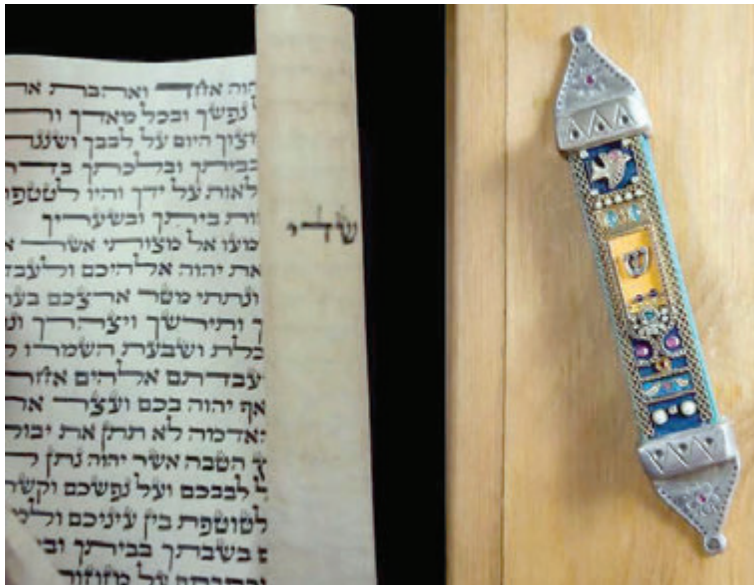 הוה אחד ואהבת את
נפשך ובכל מאדך וה
מצוך היום על לבבך ושננת
בביתך ובלכתך בדר
לאות על ידך והיו לטטפת
זות ביתך ובשעריך
מעו אל מצותי אשר א
את יהוה אלהיכם ולעבד
ונתתי מטר ארצכם בעת
ך ותירשך ויצהרך ונ
כלת ושבעת השמרו ל
עבדתם אלהים אחר
אף יהוה בכם ועצר את
האדמה לא תתן את יבול
הטבה אשר יהוה נתן ל
ל לבבכם ועל נפשכם וקשר
לטוטפת בין עיניכם ולמ
ם בשבתך בביתך וב
על מזוזו
שדי
ש